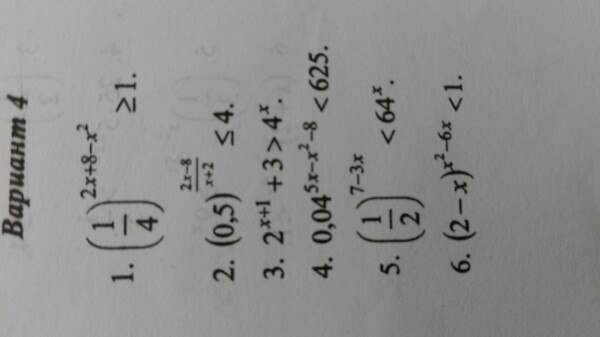 Вариант 4
1. (1/4)^(2x+8−x²) ≥ 1.
2. (0,5)^((2x−8)/(x+2)) ≤ 4.
3. 2^(x+1) + 3 > 4^x.
4. 0,04^(5x−x²−8) < 625.
5. (1/2)^(7−3x) < 64^x.
6. (2−x)^(x²−6x) < 1.